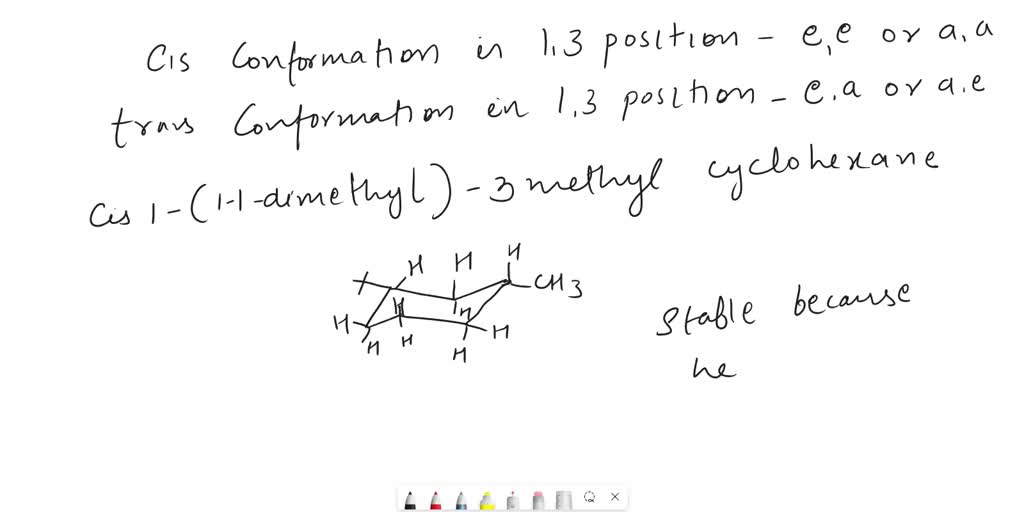 Cis Conformation in 1,3 position - e,e or a,a
trans Conformation in 1,3 position - e,a or a,e
Cis 1-(1-1-dimethyl)-3 methyl cyclohexane
H H H
CH3
H H H
H H H H
Stable because
he